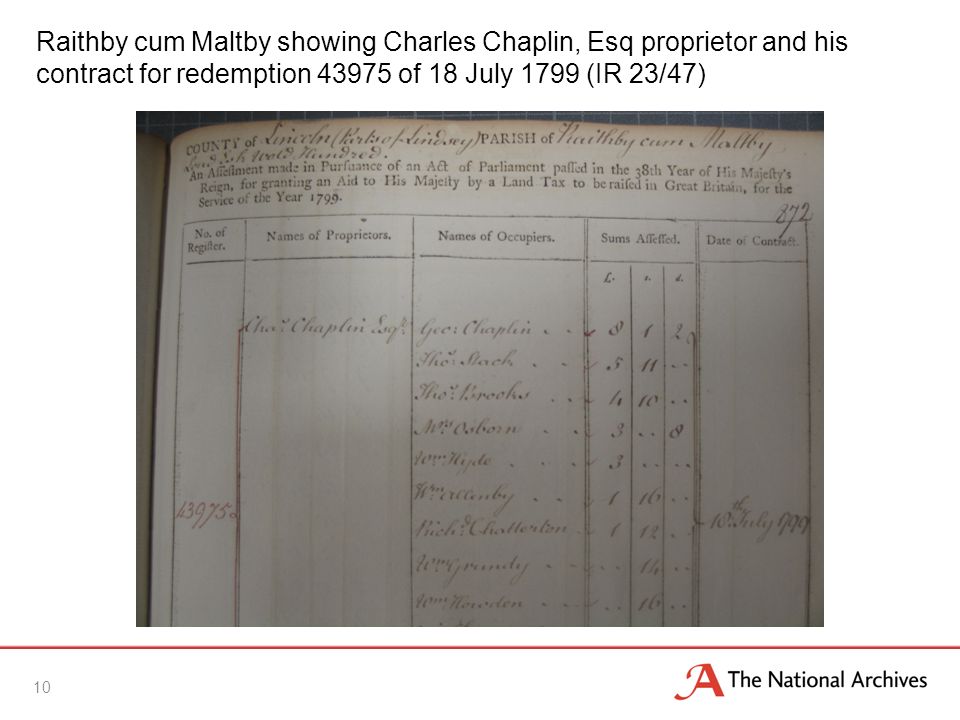 Raithby cum Maltby showing Charles Chaplin, Esq proprietor and his
contract for redemption 43975 of 18 July 1799 (IR 23/47)
COUNTY of Lincoln (Parts of Lindsey) PARISH of Raithby cum Maltby
Wold Hundred.
An Assessment made in Pursuance of an Act of Parliament passed in the 38th Year of His Majesty's
Reign, for granting an Aid to His Majesty by a Land Tax to be raised in Great Britain, for the
Service of the Year 1799.
872
No. of Register. Names of Proprietors. Names of Occupiers. Sums Assessed. Date of Contract.
£. s. d.
Chas. Chaplin Esqr. Geo: Chaplin . . 8 1 2
Thos. Stack . . . 5 11 . .
Thos. Brooks . . . 4 10 . .
Mrs Osborn . . 3 . . 8
Wm Hyde . . . 3 . . . .
43975 Wm Allenby . . 1 16 . . 18th July 1799
Richd. Chatterton . 1 12 . .
Wm Grundy . . . . 14 . .
Wm Howden . . . . 16 . .
10
The National Archives